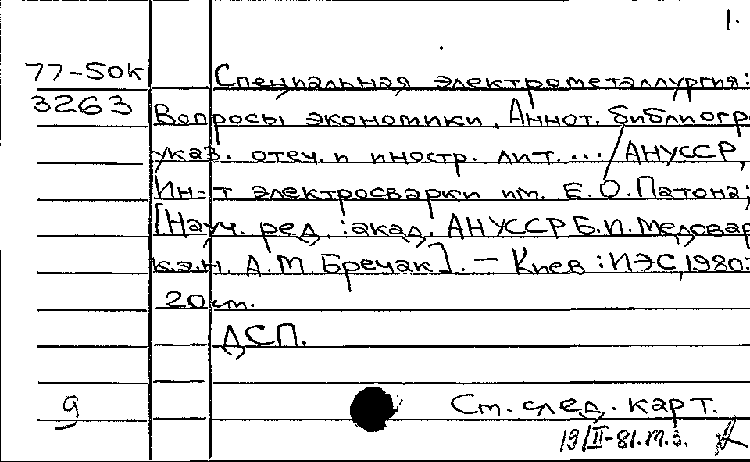 1.
77-50к Специальная электрометаллургия:
3263 Вопросы экономики. Аннот. библиогр.
указ. отеч. и иностр. лит... / АНУССР,
Ин-т электросварки им. Е.О.Патона;
[Науч. ред.: акад. АНУССР Б.И. Медовар
к.э.н. А.М. Бречак]. — Киев: ИЭС, 1980.
20 см.
ДСП.
9 См. след. карт.
19/II-81.